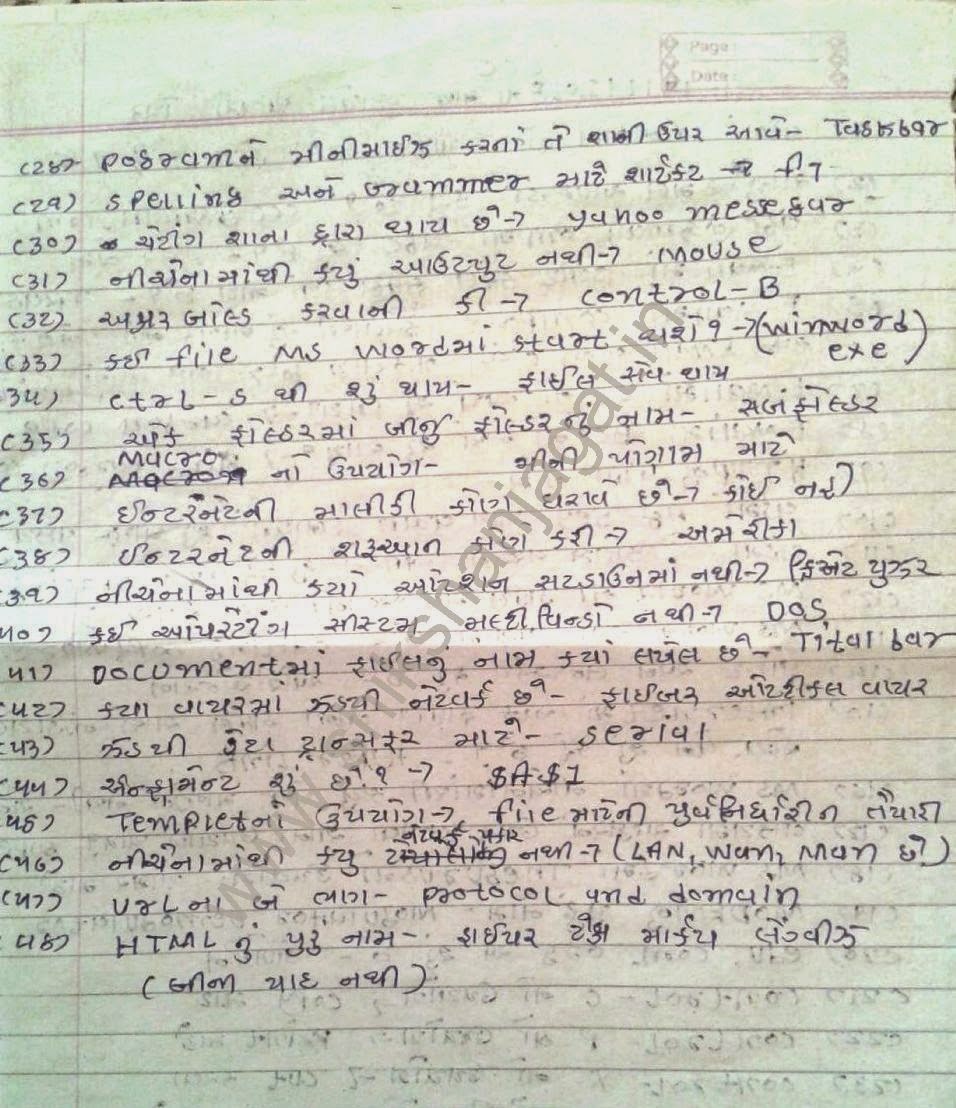 Page :
Date :
(28) Pogramને મીનીમાઈઝ કરતાં તે શાની ઉપર આવે- Taskbar
(29) Spelling અને Grammer માટે શાર્ટકટ -> f7
(30) ચેટીંગ શાના દ્વારા થાય છે-> yahoo messegar
(31) નીચેનામાંથી ક્યું આઉટપુટ નથી-> Mouse
(32) અક્ષર બોલ્ડ કરવાની કી -> Control-B
(33) કઈ file MS Wordમાં સ્ટાર્ટ થશે? -> (Winword exe)
(34) Ctrl-S થી શું થાય- ફાઈલ સેવ થાય
(35) એક ફોલ્ડરમાં બીજુ ફોલ્ડર નું નામ- સબફોલ્ડર
(36) Macro નો ઉપયોગ- મીની પોગ્રામ માટે
(37) ઈન્ટરનેટની માલીકી કોણ ધરાવે છે-> કોઈ નહી
(38) ઈન્ટરનેટની શરૂઆત કોણે કરી-> અમેરીકા
(39) નીચેનામાંથી ક્યો ઓપ્શન સટડાઉનમાં નથી-> ક્રિએટ યુઝર
(40) કઈ ઓપરેટીંગ સીસ્ટમ મલ્ટી વિન્ડો નથી-> DOS
(41) Documentમાં ફાઈલનું નામ ક્યાં લખેલ છે- Tital bar
(42) ક્યા વાયરમાં ઝડપી નેટવર્ક છે- ફાઈબર ઓપ્ટીકલ વાયર
(43) ઝડપી ડેટા ટ્રાન્સફર માટે- serial
(44) એન્ક્રુમેન્ટ શું છે? ->
(45) Templetનો ઉપયોગ-> file માટેની પુર્વનિર્ધારીત તૈયારી
(46) નીચેનામાંથી ક્યુ નેટવર્ક પ્રકાર નથી-> (LAN, Wan, Man છે)
(47) Urlના બે ભાગ- Protocol and domain
(48) HTML નું પુરું નામ- હાઈપર ટેક્ષ માર્કપ લેંગ્વીઝ
(બીજા યાદ નથી)
www.shikshanjagat.in